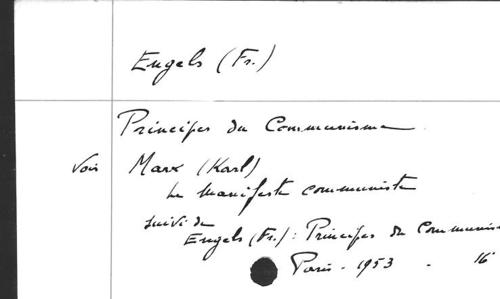 Engels (Fr.)
Principes du Communisme
Voir Marx (Karl)
Le Manifeste communiste
suivi de
Engels (Fr.) : Principes du Communis
Paris - 1953 . 16°